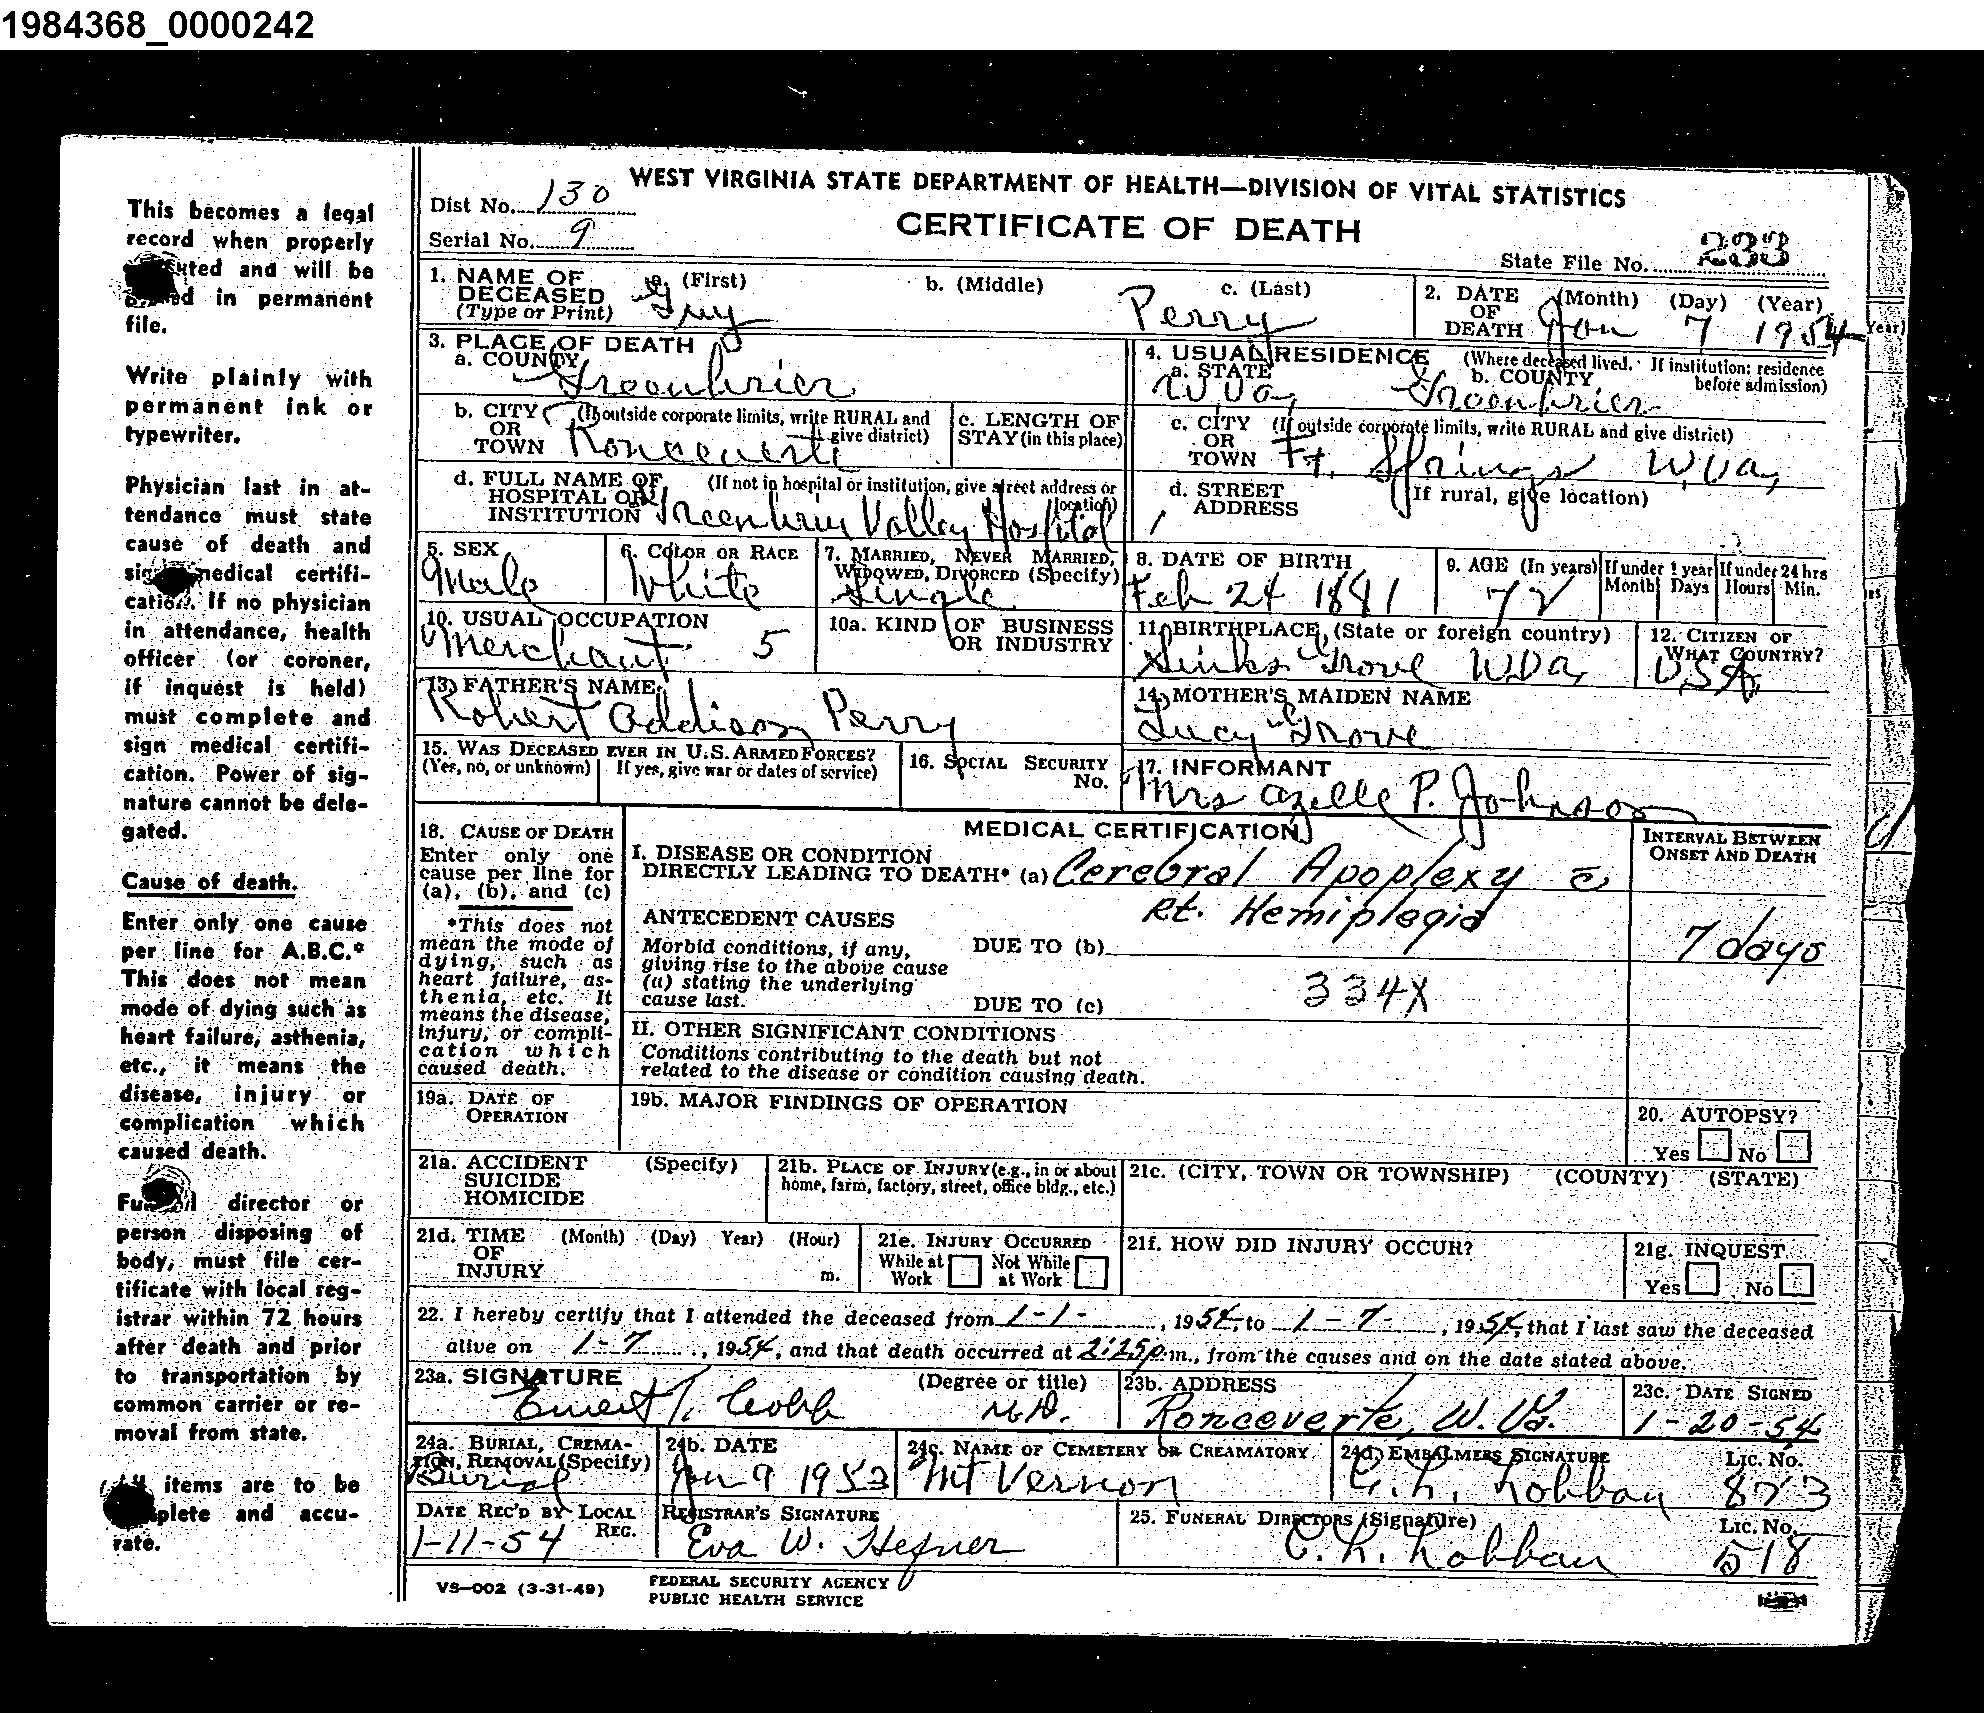 1984368_0000242
This becomes a legal
record when properly
and will be
in permanent
file.
Write plainly with
permanent ink or
typewriter.
Physician last in at-
tendance must state
cause of death and
medical certifi-
cation. If no physician
in attendance, health
officer (or coroner,
if inquest is held)
must complete and
sign medical certifi-
cation. Power of sig-
nature cannot be dele-
gated.
Cause of death.
Enter only one cause
per line for A.B.C.*
This does not mean
mode of dying such as
heart failure, asthenia,
etc., it means the
disease, injury or
complication which
caused death.
director or
person disposing of
body, must file cer-
tificate with local reg-
istrar within 72 hours
after death and prior
to transportation by
common carrier or re-
moval from state.
items are to be
and accu-
rate.
WEST VIRGINIA STATE DEPARTMENT OF HEALTH—DIVISION OF VITAL STATISTICS
Dist No. 130
CERTIFICATE OF DEATH
Serial No. 9
State File No. 233
1. NAME OF DECEASED (Type or Print) a. (First) Guy b. (Middle) c. (Last) Perry
2. DATE OF DEATH (Month) (Day) (Year) Jan 7 1954
3. PLACE OF DEATH
a. COUNTY Greenbrier
4. USUAL RESIDENCE (Where deceased lived. If institution: residence before admission)
a. STATE W Va, b. COUNTY Greenbrier
b. CITY OR TOWN (If outside corporate limits, write RURAL and give district) Ronceverte
c. LENGTH OF STAY (in this place)
c. CITY OR TOWN (If outside corporate limits, write RURAL and give district) Ft. Springs W.Va,
d. FULL NAME OF HOSPITAL OR INSTITUTION (If not in hospital or institution, give street address or location) Greenbrier Valley Hospital
d. STREET ADDRESS (If rural, give location)
5. SEX Male
6. COLOR OR RACE White
7. MARRIED, NEVER MARRIED, WIDOWED, DIVORCED (Specify) Single
8. DATE OF BIRTH Feb 24 1881
9. AGE (In years) 72 If under 1 year Month Days If under 24 hrs Hours Min.
10. USUAL OCCUPATION Merchant 5
10a. KIND OF BUSINESS OR INDUSTRY
11. BIRTHPLACE (State or foreign country) Sinks Grove W.Va,
12. CITIZEN OF WHAT COUNTRY? USA
13. FATHER'S NAME Robert Addison Perry
14. MOTHER'S MAIDEN NAME Lucy Grove
15. WAS DECEASED EVER IN U.S. ARMED FORCES? (Yes, no, or unknown) If yes, give war or dates of service)
16. SOCIAL SECURITY No.
17. INFORMANT Mrs Azelle P. Johnson
18. CAUSE OF DEATH
Enter only one
cause per line for
(a), (b), and (c)
*This does not
mean the mode of
dying, such as
heart failure, as-
thenia, etc. It
means the disease,
injury, or compli-
cation which
caused death.
MEDICAL CERTIFICATION
INTERVAL BETWEEN ONSET AND DEATH
I. DISEASE OR CONDITION
DIRECTLY LEADING TO DEATH* (a) Cerebral Apoplexy c̄
Rt. Hemiplegia
7 days
ANTECEDENT CAUSES
Morbid conditions, if any,
giving rise to the above cause
(a) stating the underlying
cause last.
DUE TO (b)
DUE TO (c)
334X
II. OTHER SIGNIFICANT CONDITIONS
Conditions contributing to the death but not
related to the disease or condition causing death.
19a. DATE OF OPERATION
19b. MAJOR FINDINGS OF OPERATION
20. AUTOPSY? Yes No
21a. ACCIDENT SUICIDE HOMICIDE (Specify)
21b. PLACE OF INJURY (e.g., in or about home, farm, factory, street, office bldg., etc.)
21c. (CITY, TOWN OR TOWNSHIP) (COUNTY) (STATE)
21d. TIME OF INJURY (Month) (Day) Year) (Hour) m.
21e. INJURY OCCURRED While at Work Not While at Work
21f. HOW DID INJURY OCCUR?
21g. INQUEST Yes No
22. I hereby certify that I attended the deceased from 1-1-, 1954, to 1-7-, 1954, that I last saw the deceased
alive on 1-7, 1954, and that death occurred at 2:25p.m., from the causes and on the date stated above.
23a. SIGNATURE (Degree or title) Cobb M.D.
23b. ADDRESS Ronceverte, W. Va.
23c. DATE SIGNED 1-20-54
24a. BURIAL, CREMATION, REMOVAL (Specify) Burial
24b. DATE Jan 9 1953
24c. NAME OF CEMETERY OR CREAMATORY Mt Vernon
24d. EMBALMERS SIGNATURE C. L. Lobban Lic. No. 873
DATE REC'D BY LOCAL REG. 1-11-54
REGISTRAR'S SIGNATURE Eva W. Hefner
25. FUNERAL DIRECTORS (Signature) C. L. Lobban Lic. No. 518
VS—002 (3-31-49)
FEDERAL SECURITY AGENCY
PUBLIC HEALTH SERVICE